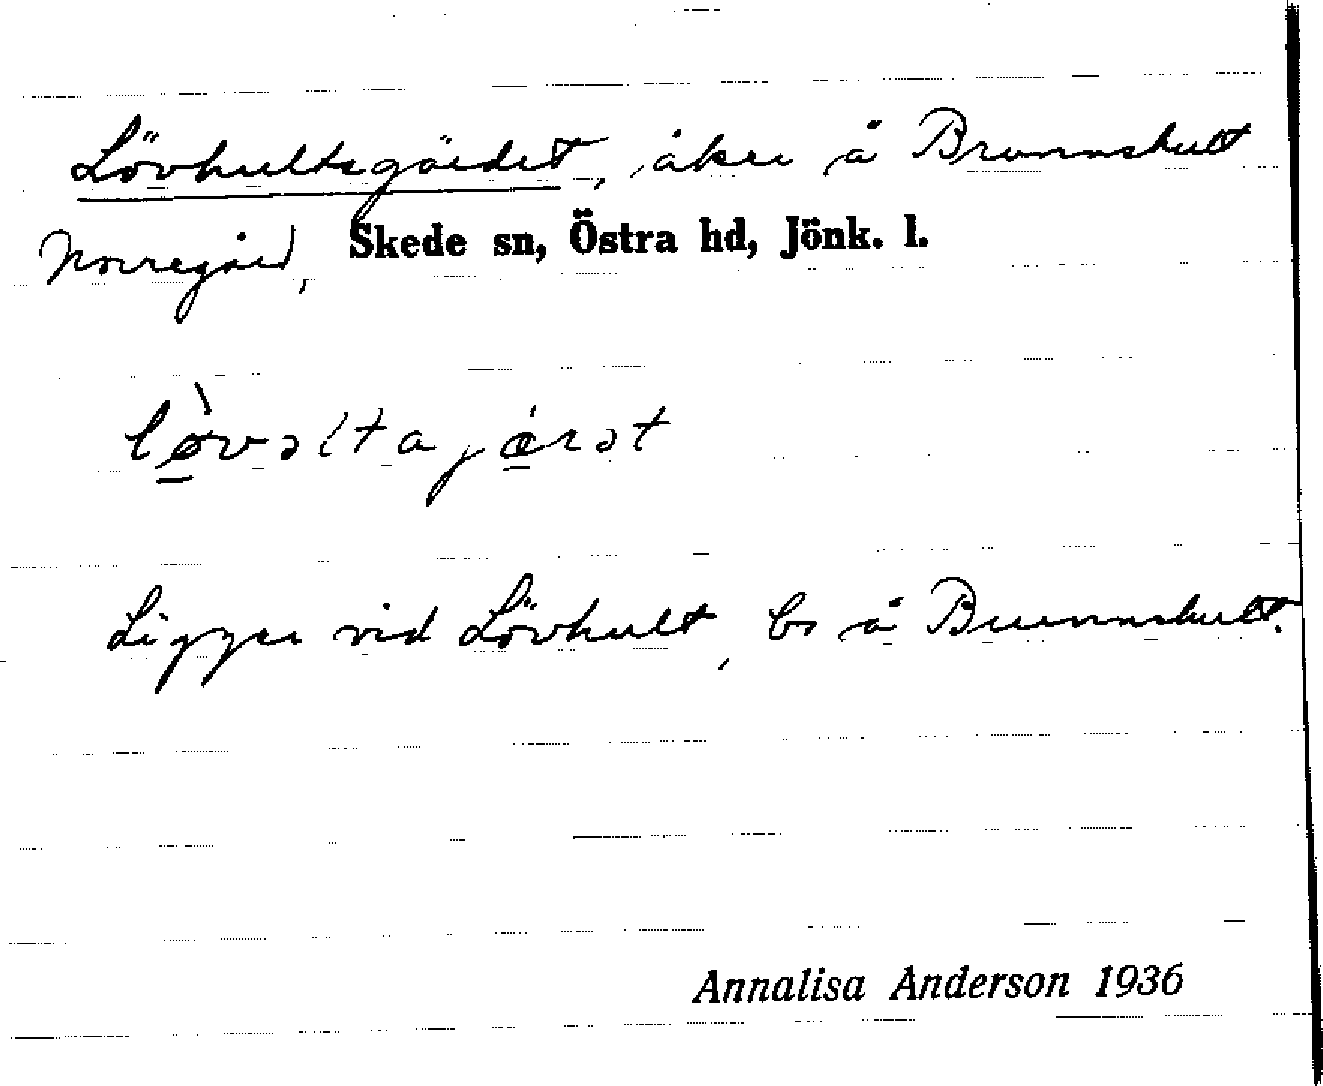 Lövhultsgärdet, åker å Brunnshult
Norregård, Skede sn, Östra hd, Jönk. l.
lø̠̀vəltajǽ̠rət
Ligger vid Lövhult, bs å Brunnshult.
Annalisa Anderson 1936